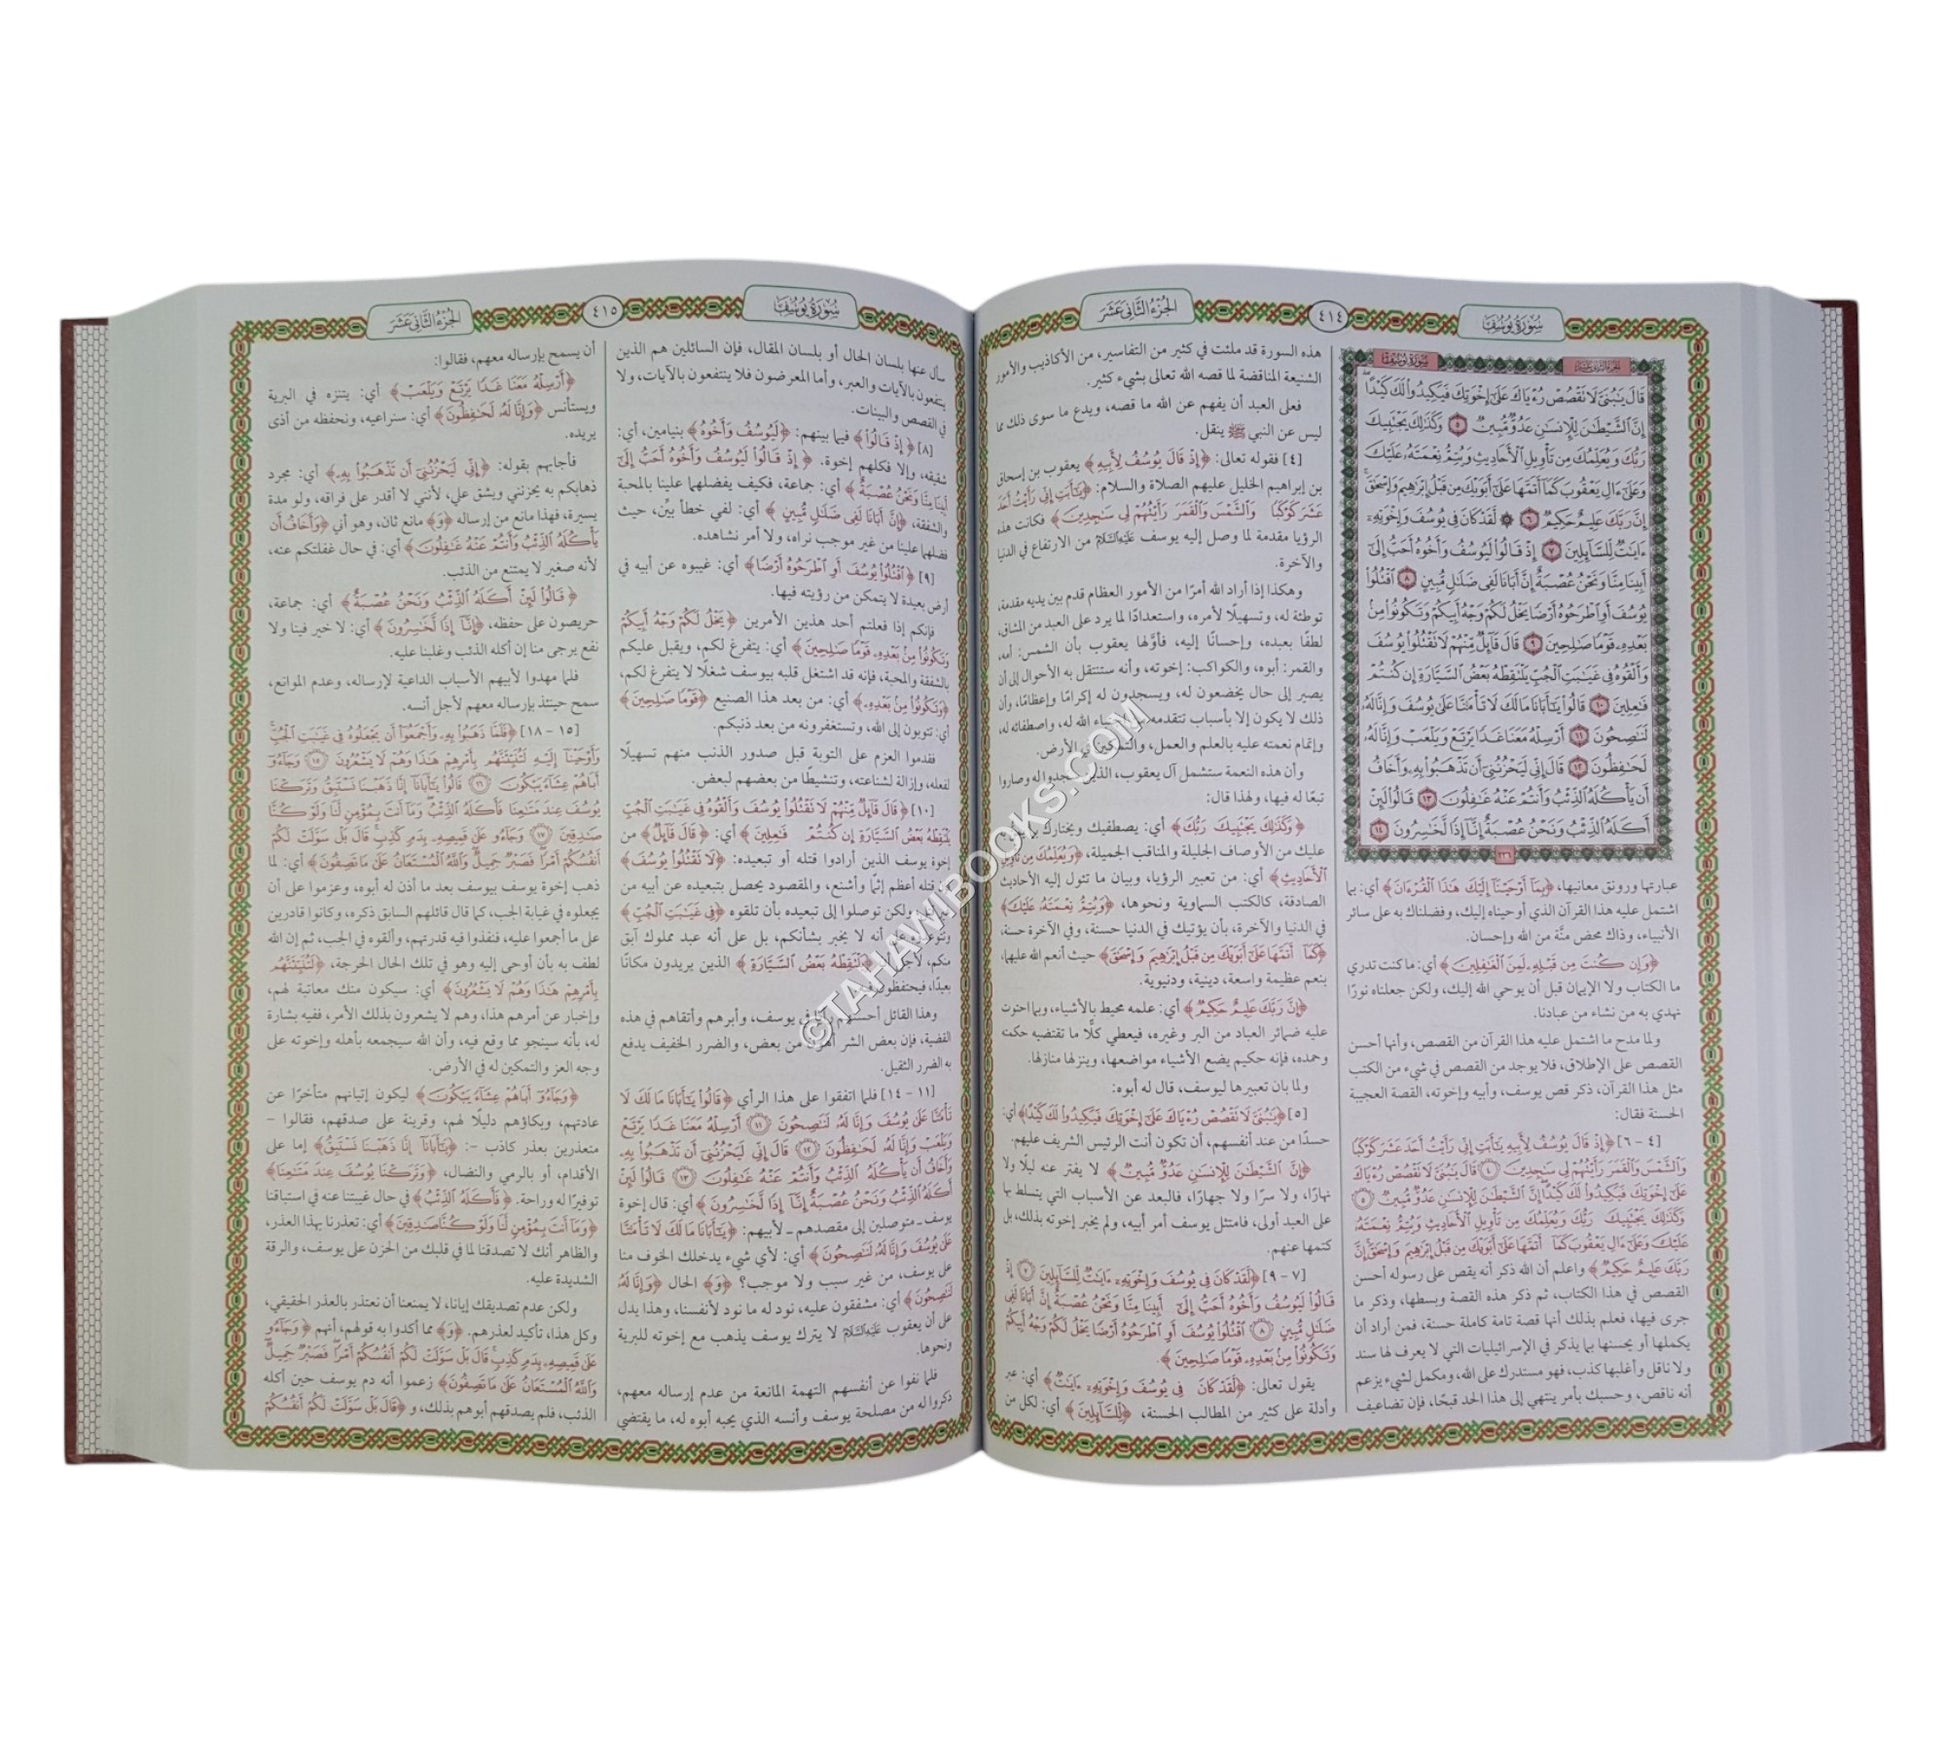 سورة يوسف
٤١٤
الجزء الثاني عشر
سورة يوسف
قَالَ يَٰبُنَيَّ لَا تَقْصُصْ رُءْيَاكَ عَلَىٰٓ إِخْوَتِكَ فَيَكِيدُوا۟ لَكَ كَيْدًا
إِنَّ ٱلشَّيْطَٰنَ لِلْإِنسَٰنِ عَدُوٌّ مُّبِينٌ ٥ وَكَذَٰلِكَ يَجْتَبِيكَ
رَبُّكَ وَيُعَلِّمُكَ مِن تَأْوِيلِ ٱلْأَحَادِيثِ وَيُتِمُّ نِعْمَتَهُۥ عَلَيْكَ
وَعَلَىٰٓ ءَالِ يَعْقُوبَ كَمَآ أَتَمَّهَا عَلَىٰٓ أَبَوَيْكَ مِن قَبْلُ إِبْرَٰهِيمَ وَإِسْحَٰقَ
إِنَّ رَبَّكَ عَلِيمٌ حَكِيمٌ ٦ ۞ لَّقَدْ كَانَ فِى يُوسُفَ وَإِخْوَتِهِۦٓ
ءَايَٰتٌ لِّلسَّآئِلِينَ ٧ إِذْ قَالُوا۟ لَيُوسُفُ وَأَخُوهُ أَحَبُّ إِلَىٰٓ
أَبِينَا مِنَّا وَنَحْنُ عُصْبَةٌ إِنَّ أَبَانَا لَفِى ضَلَٰلٍ مُّبِينٍ ٨ ٱقْتُلُوا۟
يُوسُفَ أَوِ ٱطْرَحُوهُ أَرْضًا يَخْلُ لَكُمْ وَجْهُ أَبِيكُمْ وَتَكُونُوا۟ مِنۢ
بَعْدِهِۦ قَوْمًا صَٰلِحِينَ ٩ قَالَ قَآئِلٌ مِّنْهُمْ لَا تَقْتُلُوا۟ يُوسُفَ
وَأَلْقُوهُ فِى غَيَٰبَتِ ٱلْجُبِّ يَلْتَقِطْهُ بَعْضُ ٱلسَّيَّارَةِ إِن كُنتُمْ
فَٰعِلِينَ ١٠ قَالُوا۟ يَٰٓأَبَانَا مَا لَكَ لَا تَأْمَ۫نَّا عَلَىٰ يُوسُفَ وَإِنَّا لَهُۥ
لَنَٰصِحُونَ ١١ أَرْسِلْهُ مَعَنَا غَدًا يَرْتَعْ وَيَلْعَبْ وَإِنَّا لَهُۥ
لَحَٰفِظُونَ ١٢ قَالَ إِنِّى لَيَحْزُنُنِىٓ أَن تَذْهَبُوا۟ بِهِۦ وَأَخَافُ
أَن يَأْكُلَهُ ٱلذِّئْبُ وَأَنتُمْ عَنْهُ غَٰفِلُونَ ١٣ قَالُوا۟ لَئِنْ
أَكَلَهُ ٱلذِّئْبُ وَنَحْنُ عُصْبَةٌ إِنَّآ إِذًا لَّخَٰسِرُونَ ١٤
٢٣٦
عبارتها ورونق معانيها، ﴿بِمَآ أَوْحَيْنَآ إِلَيْكَ هَٰذَا ٱلْقُرْءَانَ﴾ أي: بما
اشتمل عليه هذا القرآن الذي أوحيناه إليك، وفضلناك به على سائر
الأنبياء، وذاك محض منَّة من الله وإحسان.
﴿وَإِن كُنتَ مِن قَبْلِهِۦ لَمِنَ ٱلْغَٰفِلِينَ﴾ أي: ما كنت تدري
ما الكتاب ولا الإيمان قبل أن يوحي الله إليك، ولكن جعلناه نورًا
نهدي به من نشاء من عبادنا.
ولما مدح ما اشتمل عليه هذا القرآن من القصص، وأنها أحسن
القصص على الإطلاق، فلا يوجد من القصص في شيء من الكتب
مثل هذا القرآن، ذكر قصص يوسف، وأبيه وإخوته، القصة العجيبة
الحسنة فقال:
[٤ – ٦] ﴿إِذْ قَالَ يُوسُفُ لِأَبِيهِ يَٰٓأَبَتِ إِنِّى رَأَيْتُ أَحَدَ عَشَرَ كَوْكَبًا
وَٱلشَّمْسَ وَٱلْقَمَرَ رَأَيْتُهُمْ لِى سَٰجِدِينَ ٤ قَالَ يَٰبُنَيَّ لَا تَقْصُصْ رُءْيَاكَ
عَلَىٰٓ إِخْوَتِكَ فَيَكِيدُوا۟ لَكَ كَيْدًا إِنَّ ٱلشَّيْطَٰنَ لِلْإِنسَٰنِ عَدُوٌّ مُّبِينٌ ٥
وَكَذَٰلِكَ يَجْتَبِيكَ رَبُّكَ وَيُعَلِّمُكَ مِن تَأْوِيلِ ٱلْأَحَادِيثِ وَيُتِمُّ نِعْمَتَهُۥ
عَلَيْكَ وَعَلَىٰٓ ءَالِ يَعْقُوبَ كَمَآ أَتَمَّهَا عَلَىٰٓ أَبَوَيْكَ مِن قَبْلُ إِبْرَٰهِيمَ وَإِسْحَٰقَ إِنَّ
رَبَّكَ عَلِيمٌ حَكِيمٌ﴾ واعلم أن الله ذكر أنه يقص على رسوله أحسن
القصص في هذا الكتاب، ثم ذكر هذه القصة وبسطها، وذكر ما
جرى فيها، فعلم بذلك أنها قصة تامة كاملة حسنة، فمن أراد أن
يكملها أو يحسنها بما يذكر في الإسرائيليات التي لا يعرف لها سند
ولا ناقل وأغلبها كذب، فهو مستدرك على الله، ومكمل لشيء يزعم
أنه ناقص، وحسبك بأمر ينتهي إلى هذا الحد قبحًا، فإن تضاعيف
هذه السورة قد ملئت في كثير من التفاسير، من الأكاذيب والأمور
الشنيعة المناقضة لما قصه الله تعالى بشيء كثير.
فعلى العبد أن يفهم عن الله ما قصه، ويدع ما سوى ذلك مما
ليس عن النبي ﷺ ينقل.
[٤] فقوله تعالى: ﴿إِذْ قَالَ يُوسُفُ لِأَبِيهِ﴾ يعقوب بن إسحاق
بن إبراهيم الخليل عليهم الصلاة والسلام: ﴿يَٰٓأَبَتِ إِنِّى رَأَيْتُ أَحَدَ
عَشَرَ كَوْكَبًا وَٱلشَّمْسَ وَٱلْقَمَرَ رَأَيْتُهُمْ لِى سَٰجِدِينَ﴾ فكانت هذه
الرؤيا مقدمة لما وصل إليه يوسف عليه السلام من الارتفاع في الدنيا
والآخرة.
وهكذا إذا أراد الله أمرًا من الأمور العظام قدم بين يديه مقدمة،
توطئة له، وتسهيلًا لأمره، واستعدادًا لما يرد على العبد من المشاق،
لطفًا بعبده، وإحسانًا إليه، فأوَّلها يعقوب بأن الشمس: أمه،
والقمر: أبوه، والكواكب: إخوته، وأنه ستنتقل به الأحوال إلى أن
يصير إلى حال يخضعون له، ويسجدون له إكرامًا وإعظامًا، وأن
ذلك لا يكون إلا بأسباب تتقدمه الله له، واصطفائه له،
وإتمام نعمته عليه بالعلم والعمل، والتمكين الأرض.
وأن هذه النعمة ستشمل آل يعقوب، الذين له وصاروا
تبعًا له فيها، ولهذا قال:
﴿وَكَذَٰلِكَ يَجْتَبِيكَ رَبُّكَ﴾ أي: يصطفيك ويختارك
عليك من الأوصاف الجليلة والمناقب الجميلة، ﴿وَيُعَلِّمُكَ مِن تَأْوِيلِ
ٱلْأَحَادِيثِ﴾ أي: من تعبير الرؤيا، وبيان ما تئول إليه الأحاديث
الصادقة، كالكتب السماوية ونحوها، ﴿وَيُتِمُّ نِعْمَتَهُۥ عَلَيْكَ﴾
في الدنيا والآخرة، بأن يؤتيك في الدنيا حسنة، وفي الآخرة حسنة،
﴿كَمَآ أَتَمَّهَا عَلَىٰٓ أَبَوَيْكَ مِن قَبْلُ إِبْرَٰهِيمَ وَإِسْحَٰقَ﴾ حيث أنعم الله عليهما،
بنعم عظيمة واسعة، دينية، ودنيوية.
﴿إِنَّ رَبَّكَ عَلِيمٌ حَكِيمٌ﴾ أي: علمه محيط بالأشياء، وبما احتوت
عليه ضمائر العباد من البر وغيره، فيعطي كلًّا ما تقتضيه حكمته
وحمده، فإنه حكيم يضع الأشياء مواضعها، وينزلها منازلها.
ولما بان تعبيرها ليوسف، قال له أبوه:
[٥] ﴿يَٰبُنَيَّ لَا تَقْصُصْ رُءْيَاكَ عَلَىٰٓ إِخْوَتِكَ فَيَكِيدُوا۟ لَكَ كَيْدًا﴾ أي:
حسدًا من عند أنفسهم، أن تكون أنت الرئيس الشريف عليهم.
﴿إِنَّ ٱلشَّيْطَٰنَ لِلْإِنسَٰنِ عَدُوٌّ مُّبِينٌ﴾ لا يفتر عنه ليلًا ولا
نهارًا، ولا سرًا ولا جهارًا، فالبعد عن الأسباب التي يتسلط بها
على العبد أولى، فامتثل يوسف أمر أبيه، ولم يخبر إخوته بذلك، بل
كتمها عنهم.
[٧ – ٩] ﴿لَّقَدْ كَانَ فِى يُوسُفَ وَإِخْوَتِهِۦٓ ءَايَٰتٌ لِّلسَّآئِلِينَ ٧ إِذْ
قَالُوا۟ لَيُوسُفُ وَأَخُوهُ أَحَبُّ إِلَىٰٓ أَبِينَا مِنَّا وَنَحْنُ عُصْبَةٌ إِنَّ أَبَانَا لَفِى
ضَلَٰلٍ مُّبِينٍ ٨ ٱقْتُلُوا۟ يُوسُفَ أَوِ ٱطْرَحُوهُ أَرْضًا يَخْلُ لَكُمْ وَجْهُ أَبِيكُمْ
وَتَكُونُوا۟ مِنۢ بَعْدِهِۦ قَوْمًا صَٰلِحِينَ﴾.
يقول تعالى: ﴿لَّقَدْ كَانَ فِى يُوسُفَ وَإِخْوَتِهِۦٓ ءَايَٰتٌ﴾ أي: عبر
وأدلة على كثير من المطالب الحسنة، ﴿لِّلسَّآئِلِينَ﴾ أي: لكل من
سورة يوسف
٤١٥
الجزء الثاني عشر
سأل عنها بلسان الحال أو بلسان المقال، فإن السائلين هم الذين
ينتفعون بالآيات والعبر، وأما المعرضون فلا ينتفعون بالآيات، ولا
في القصص والبينات.
[٨] ﴿إِذْ قَالُوا۟﴾ فيما بينهم: ﴿لَيُوسُفُ وَأَخُوهُ﴾ بنيامين، أي:
شقيقه، وإلا فكلهم إخوة. ﴿إِذْ قَالُوا۟ لَيُوسُفُ وَأَخُوهُ أَحَبُّ إِلَىٰٓ
أَبِينَا مِنَّا وَنَحْنُ عُصْبَةٌ﴾ أي: جماعة، فكيف يفضلهما علينا بالمحبة
والشفقة، ﴿إِنَّ أَبَانَا لَفِى ضَلَٰلٍ مُّبِينٍ﴾ أي: لفي خطأ بيِّن، حيث
فضلهما علينا من غير موجب نراه، ولا أمر نشاهده.
[٩] ﴿ٱقْتُلُوا۟ يُوسُفَ أَوِ ٱطْرَحُوهُ أَرْضًا﴾ أي: غيبوه عن أبيه في
أرض بعيدة لا يتمكن من رؤيته فيها.
فإنكم إذا فعلتم أحد هذين الأمرين ﴿يَخْلُ لَكُمْ وَجْهُ أَبِيكُمْ
وَتَكُونُوا۟ مِنۢ بَعْدِهِۦ قَوْمًا صَٰلِحِينَ﴾ أي: يتفرغ لكم، ويقبل عليكم
بالشفقة والمحبة، فإنه قد اشتغل قلبه بيوسف شغلًا لا يتفرغ لكم،
﴿وَتَكُونُوا۟ مِنۢ بَعْدِهِۦ﴾ أي: من بعد هذا الصنيع ﴿قَوْمًا صَٰلِحِينَ﴾
أي: تتوبون إلى الله، وتستغفرونه من بعد ذنبكم.
فقدموا العزم على التوبة قبل صدور الذنب منهم تسهيلًا
لفعله، وإزالة لشناعته، وتنشيطًا من بعضهم لبعض.
[١٠] ﴿قَالَ قَآئِلٌ مِّنْهُمْ لَا تَقْتُلُوا۟ يُوسُفَ وَأَلْقُوهُ فِى غَيَٰبَتِ ٱلْجُبِّ
يَلْتَقِطْهُ بَعْضُ ٱلسَّيَّارَةِ إِن كُنتُمْ فَٰعِلِينَ﴾ أي: ﴿قَالَ قَآئِلٌ﴾ من
إخوة يوسف الذين أرادوا قتله أو تبعيده: ﴿لَا تَقْتُلُوا۟ يُوسُفَ﴾
قتله أعظم إثمًا وأشنع، والمقصود يحصل بتبعيده عن أبيه من
ولكن توصلوا إلى تبعيده بأن تلقوه ﴿فِى غَيَٰبَتِ ٱلْجُبِّ﴾
وتتوعدوه على أنه لا يخبر بشأنكم، بل على أنه عبد مملوك آبق
منكم، لأجل ﴿يَلْتَقِطْهُ بَعْضُ ٱلسَّيَّارَةِ﴾ الذين يريدون مكانًا
بعيدًا، فيحتفظون فيه.
وهذا القائل أحسنهم في يوسف، وأبرهم وأتقاهم في هذه
القضية، فإن بعض الشر أهون من بعض، والضرر الخفيف يدفع
به الضرر الثقيل.
[١١ – ١٤] فلما اتفقوا على هذا الرأي ﴿قَالُوا۟ يَٰٓأَبَانَا مَا لَكَ لَا
تَأْمَ۫نَّا عَلَىٰ يُوسُفَ وَإِنَّا لَهُۥ لَنَٰصِحُونَ ١١ أَرْسِلْهُ مَعَنَا غَدًا يَرْتَعْ
وَيَلْعَبْ وَإِنَّا لَهُۥ لَحَٰفِظُونَ ١٢ قَالَ إِنِّى لَيَحْزُنُنِىٓ أَن تَذْهَبُوا۟ بِهِۦ
وَأَخَافُ أَن يَأْكُلَهُ ٱلذِّئْبُ وَأَنتُمْ عَنْهُ غَٰفِلُونَ ١٣ قَالُوا۟ لَئِنْ
أَكَلَهُ ٱلذِّئْبُ وَنَحْنُ عُصْبَةٌ إِنَّآ إِذًا لَّخَٰسِرُونَ﴾ أي: قال إخوة
يوسف ـ متوصلين إلى مقصدهم ـ لأبيهم: ﴿يَٰٓأَبَانَا مَا لَكَ لَا تَأْمَ۫نَّا
عَلَىٰ يُوسُفَ وَإِنَّا لَهُۥ لَنَٰصِحُونَ﴾ أي: لأي شيء يدخلك الخوف منا
على يوسف، من غير سبب ولا موجب؟ ﴿وَ﴾ الحال ﴿وَإِنَّا لَهُۥ
لَنَٰصِحُونَ﴾ أي: مشفقون عليه، نود له ما نود لأنفسنا، وهذا يدل
على أن يعقوب عليه السلام لا يترك يوسف يذهب مع إخوته للبرية
ونحوها.
فلما نفوا عن أنفسهم التهمة المانعة من عدم إرساله معهم،
ذكروا له من مصلحة يوسف وأنسه الذي يحبه أبوه له، ما يقتضي
أن يسمح بإرساله معهم، فقالوا:
﴿أَرْسِلْهُ مَعَنَا غَدًا يَرْتَعْ وَيَلْعَبْ﴾ أي: يتنزه في البرية
ويستأنس ﴿وَإِنَّا لَهُۥ لَحَٰفِظُونَ﴾ أي: سنراعيه، ونحفظه من أذى
يريده.
فأجابهم بقوله: ﴿إِنِّى لَيَحْزُنُنِىٓ أَن تَذْهَبُوا۟ بِهِۦ﴾ أي: مجرد
ذهابكم به يحزنني ويشق علي، لأنني لا أقدر على فراقه، ولو مدة
يسيرة، فهذا مانع من إرساله ﴿وَ﴾ مانع ثان، وهو أني ﴿وَأَخَافُ أَن
يَأْكُلَهُ ٱلذِّئْبُ وَأَنتُمْ عَنْهُ غَٰفِلُونَ﴾ أي: في حال غفلتكم عنه،
لأنه صغير لا يمتنع من الذئب.
﴿قَالُوا۟ لَئِنْ أَكَلَهُ ٱلذِّئْبُ وَنَحْنُ عُصْبَةٌ﴾ أي: جماعة،
حريصون على حفظه، ﴿إِنَّآ إِذًا لَّخَٰسِرُونَ﴾ أي: لا خير فينا ولا
نفع يرجى منا إن أكله الذئب وغلبنا عليه.
فلما مهدوا لأبيهم الأسباب الداعية لإرساله، وعدم الموانع،
سمح حينئذ بإرساله معهم لأجل أنسه.
[١٥ – ١٨] ﴿فَلَمَّا ذَهَبُوا۟ بِهِۦ وَأَجْمَعُوٓا۟ أَن يَجْعَلُوهُ فِى غَيَٰبَتِ ٱلْجُبِّ
وَأَوْحَيْنَآ إِلَيْهِ لَتُنَبِّئَنَّهُم بِأَمْرِهِمْ هَٰذَا وَهُمْ لَا يَشْعُرُونَ ١٥ وَجَآءُوٓ
أَبَاهُمْ عِشَآءً يَبْكُونَ ١٦ قَالُوا۟ يَٰٓأَبَانَآ إِنَّا ذَهَبْنَا نَسْتَبِقُ وَتَرَكْنَا
يُوسُفَ عِندَ مَتَٰعِنَا فَأَكَلَهُ ٱلذِّئْبُ وَمَآ أَنتَ بِمُؤْمِنٍ لَّنَا وَلَوْ كُنَّا
صَٰدِقِينَ ١٧ وَجَآءُو عَلَىٰ قَمِيصِهِۦ بِدَمٍ كَذِبٍ قَالَ بَلْ سَوَّلَتْ لَكُمْ
أَنفُسُكُمْ أَمْرًا فَصَبْرٌ جَمِيلٌ وَٱللَّهُ ٱلْمُسْتَعَانُ عَلَىٰ مَا تَصِفُونَ﴾ أي: لما
ذهب إخوة يوسف بيوسف بعد ما أذن له أبوه، وعزموا على أن
يجعلوه في غيابة الجب، كما قال قائلهم السابق ذكره، وكانوا قادرين
على ما أجمعوا عليه، فنفذوا فيه قدرتهم، وألقوه في الجب، ثم إن الله
لطف به بأن أوحى إليه وهو في تلك الحال الحرجة، ﴿لَتُنَبِّئَنَّهُم
بِأَمْرِهِمْ هَٰذَا وَهُمْ لَا يَشْعُرُونَ﴾ أي: سيكون منك معاتبة لهم،
وإخبار عن أمرهم هذا، وهم لا يشعرون بذلك الأمر، ففيه بشارة
له، بأنه سينجو مما وقع فيه، وأن الله سيجمعه بأهله وإخوته على
وجه العز والتمكين له في الأرض.
﴿وَجَآءُوٓ أَبَاهُمْ عِشَآءً يَبْكُونَ﴾ ليكون إتيانهم متأخرًا عن
عادتهم، وبكاؤهم دليلًا لهم، وقرينة على صدقهم، فقالوا –
متعذرين بعذر كاذب –: ﴿يَٰٓأَبَانَآ إِنَّا ذَهَبْنَا نَسْتَبِقُ﴾ إما على
الأقدام، أو بالرمي والنضال، ﴿وَتَرَكْنَا يُوسُفَ عِندَ مَتَٰعِنَا﴾
توفيرًا له وراحة. ﴿فَأَكَلَهُ ٱلذِّئْبُ﴾ في حال غيبتنا عنه في استباقنا
﴿وَمَآ أَنتَ بِمُؤْمِنٍ لَّنَا وَلَوْ كُنَّا صَٰدِقِينَ﴾ أي: تعذرنا بهذا العذر،
والظاهر أنك لا تصدقنا لما في قلبك من الحزن على يوسف، والرقة
الشديدة عليه.
ولكن عدم تصديقك إيانا، لا يمنعنا أن نعتذر بالعذر الحقيقي،
وكل هذا، تأكيد لعذرهم. ﴿وَ﴾ مما أكدوا به قولهم، أنهم ﴿وَجَآءُو
عَلَىٰ قَمِيصِهِۦ بِدَمٍ كَذِبٍ قَالَ بَلْ سَوَّلَتْ لَكُمْ أَنفُسُكُمْ أَمْرًا فَصَبْرٌ جَمِيلٌ
وَٱللَّهُ ٱلْمُسْتَعَانُ عَلَىٰ مَا تَصِفُونَ﴾ زعموا أنه دم يوسف حين أكله
الذئب، فلم يصدقهم أبوهم بذلك، و ﴿قَالَ بَلْ سَوَّلَتْ لَكُمْ أَنفُسُكُمْ
©TAHAWIBOOKS.COM